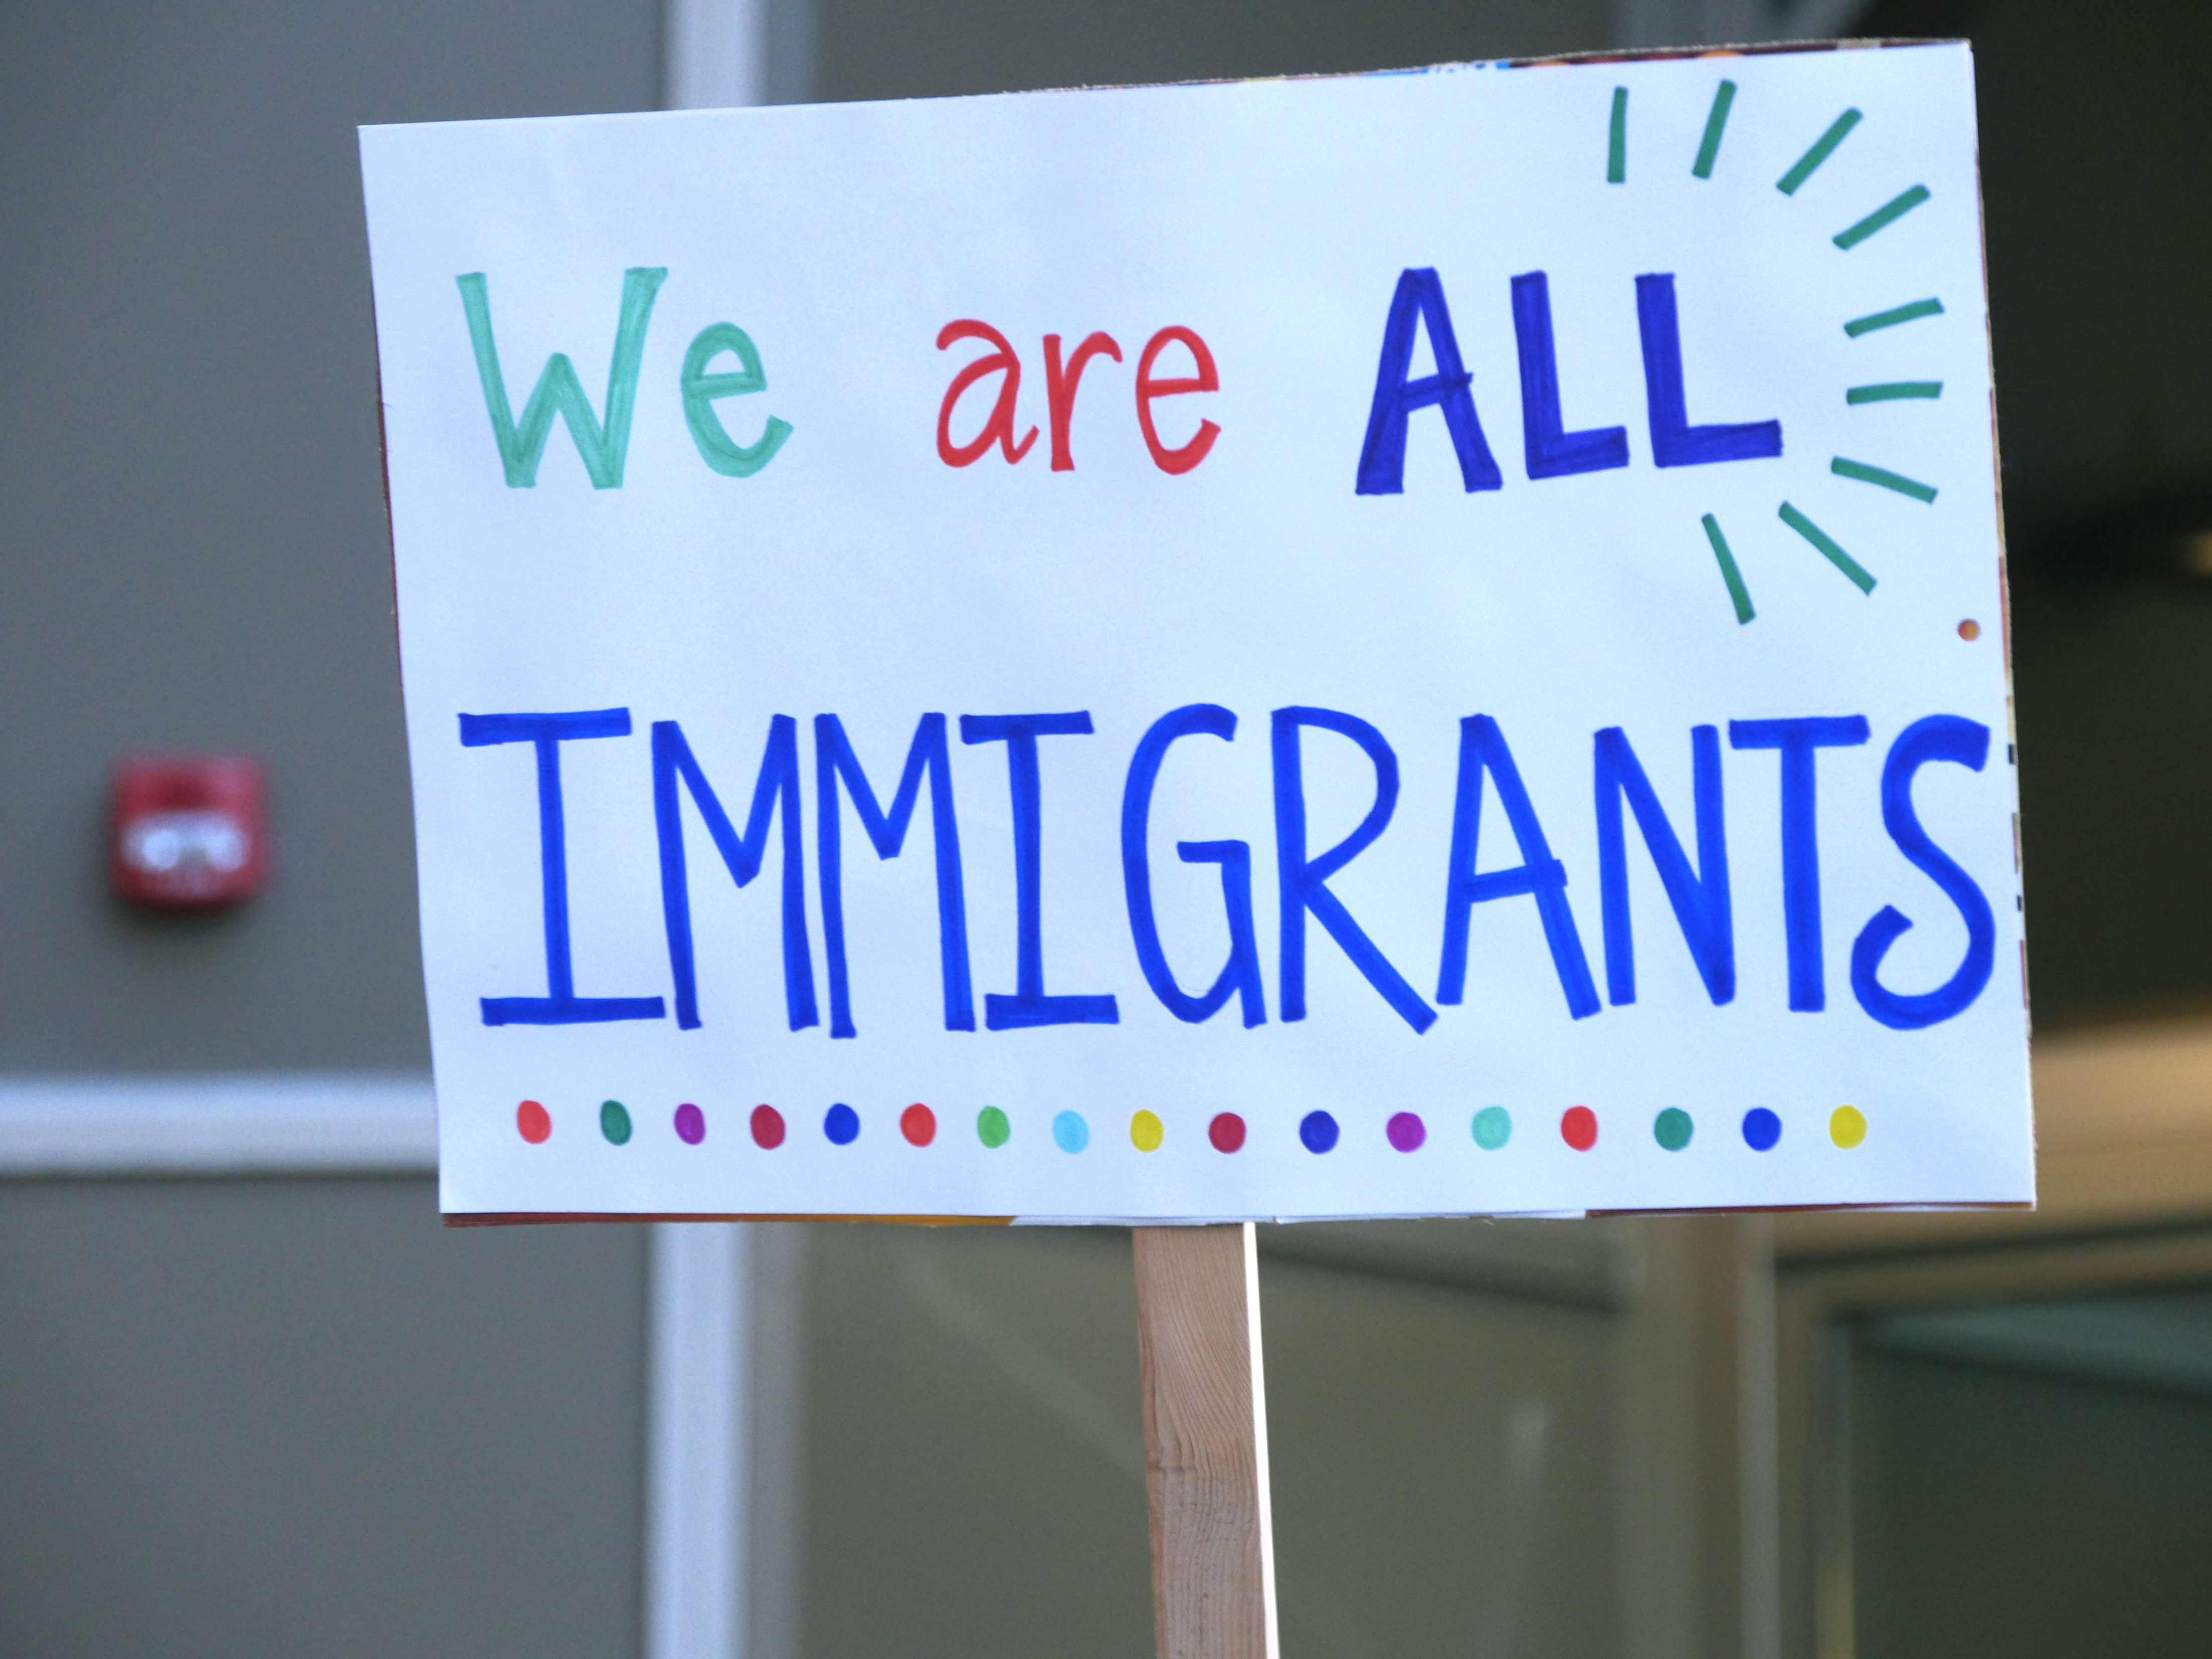 We are ALL
IMMIGRANTS